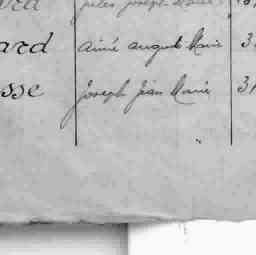 ard jules joseph Marie
ard aimé auguste Marie 3
sse Joseph Jean Marie 31
"